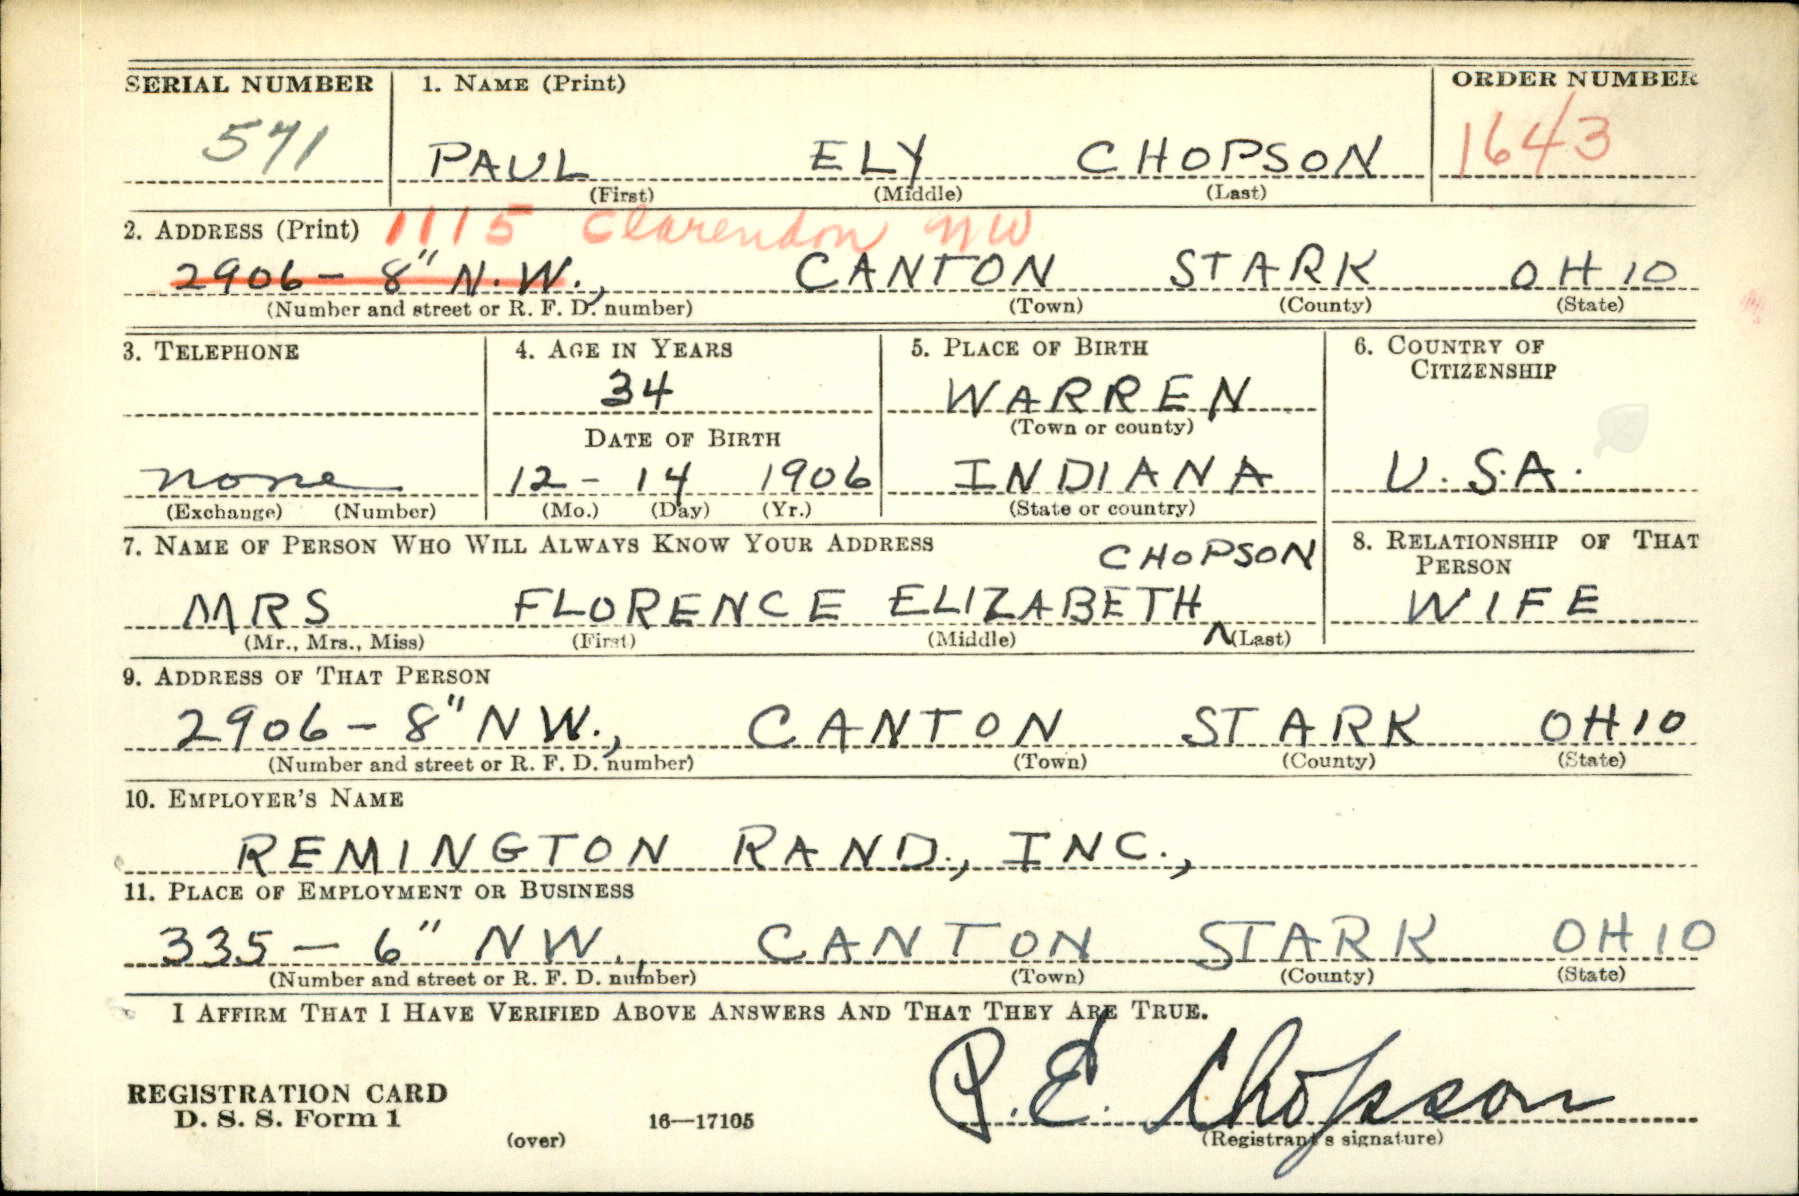 SERIAL NUMBER 1. NAME (Print) ORDER NUMBER
571 PAUL ELY CHOPSON 1643
(First) (Middle) (Last)
2. ADDRESS (Print) 1115 Clarendon NW
2906 - 8" N.W., CANTON STARK OHIO
(Number and street or R. F. D. number) (Town) (County) (State)
3. TELEPHONE 4. AGE IN YEARS 5. PLACE OF BIRTH 6. COUNTRY OF
CITIZENSHIP
34 WARREN
(Town or county)
DATE OF BIRTH
none 12 - 14 1906 INDIANA U.S.A.
(Exchange) (Number) (Mo.) (Day) (Yr.) (State or country)
7. NAME OF PERSON WHO WILL ALWAYS KNOW YOUR ADDRESS 8. RELATIONSHIP OF THAT
PERSON
CHOPSON
MRS FLORENCE ELIZABETH WIFE
(Mr., Mrs., Miss) (First) (Middle) (Last)
9. ADDRESS OF THAT PERSON
2906 - 8" NW., CANTON STARK OHIO
(Number and street or R. F. D. number) (Town) (County) (State)
10. EMPLOYER'S NAME
REMINGTON RAND., INC.,
11. PLACE OF EMPLOYMENT OR BUSINESS
335 - 6" NW., CANTON STARK OHIO
(Number and street or R. F. D. number) (Town) (County) (State)
I AFFIRM THAT I HAVE VERIFIED ABOVE ANSWERS AND THAT THEY ARE TRUE.
REGISTRATION CARD
D. S. S. Form 1 16—17105 P. E. Chopson
(over) (Registrant's signature)